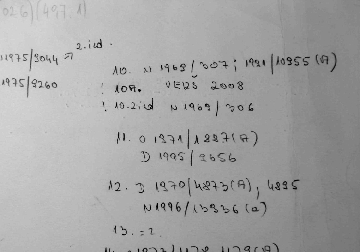 026)(497.1)
2. izd.
11975/9044 =>
1975/9260
10. N 1969/307; 1981/10955 (A)
! 10A. VERŠ 2008
! 10.2izd N 1969/306
11. O 1971/1227(A)
D 1995/3656
12. D 1970/4873(A), 4895
N1996/13936(a)
13. = 2.